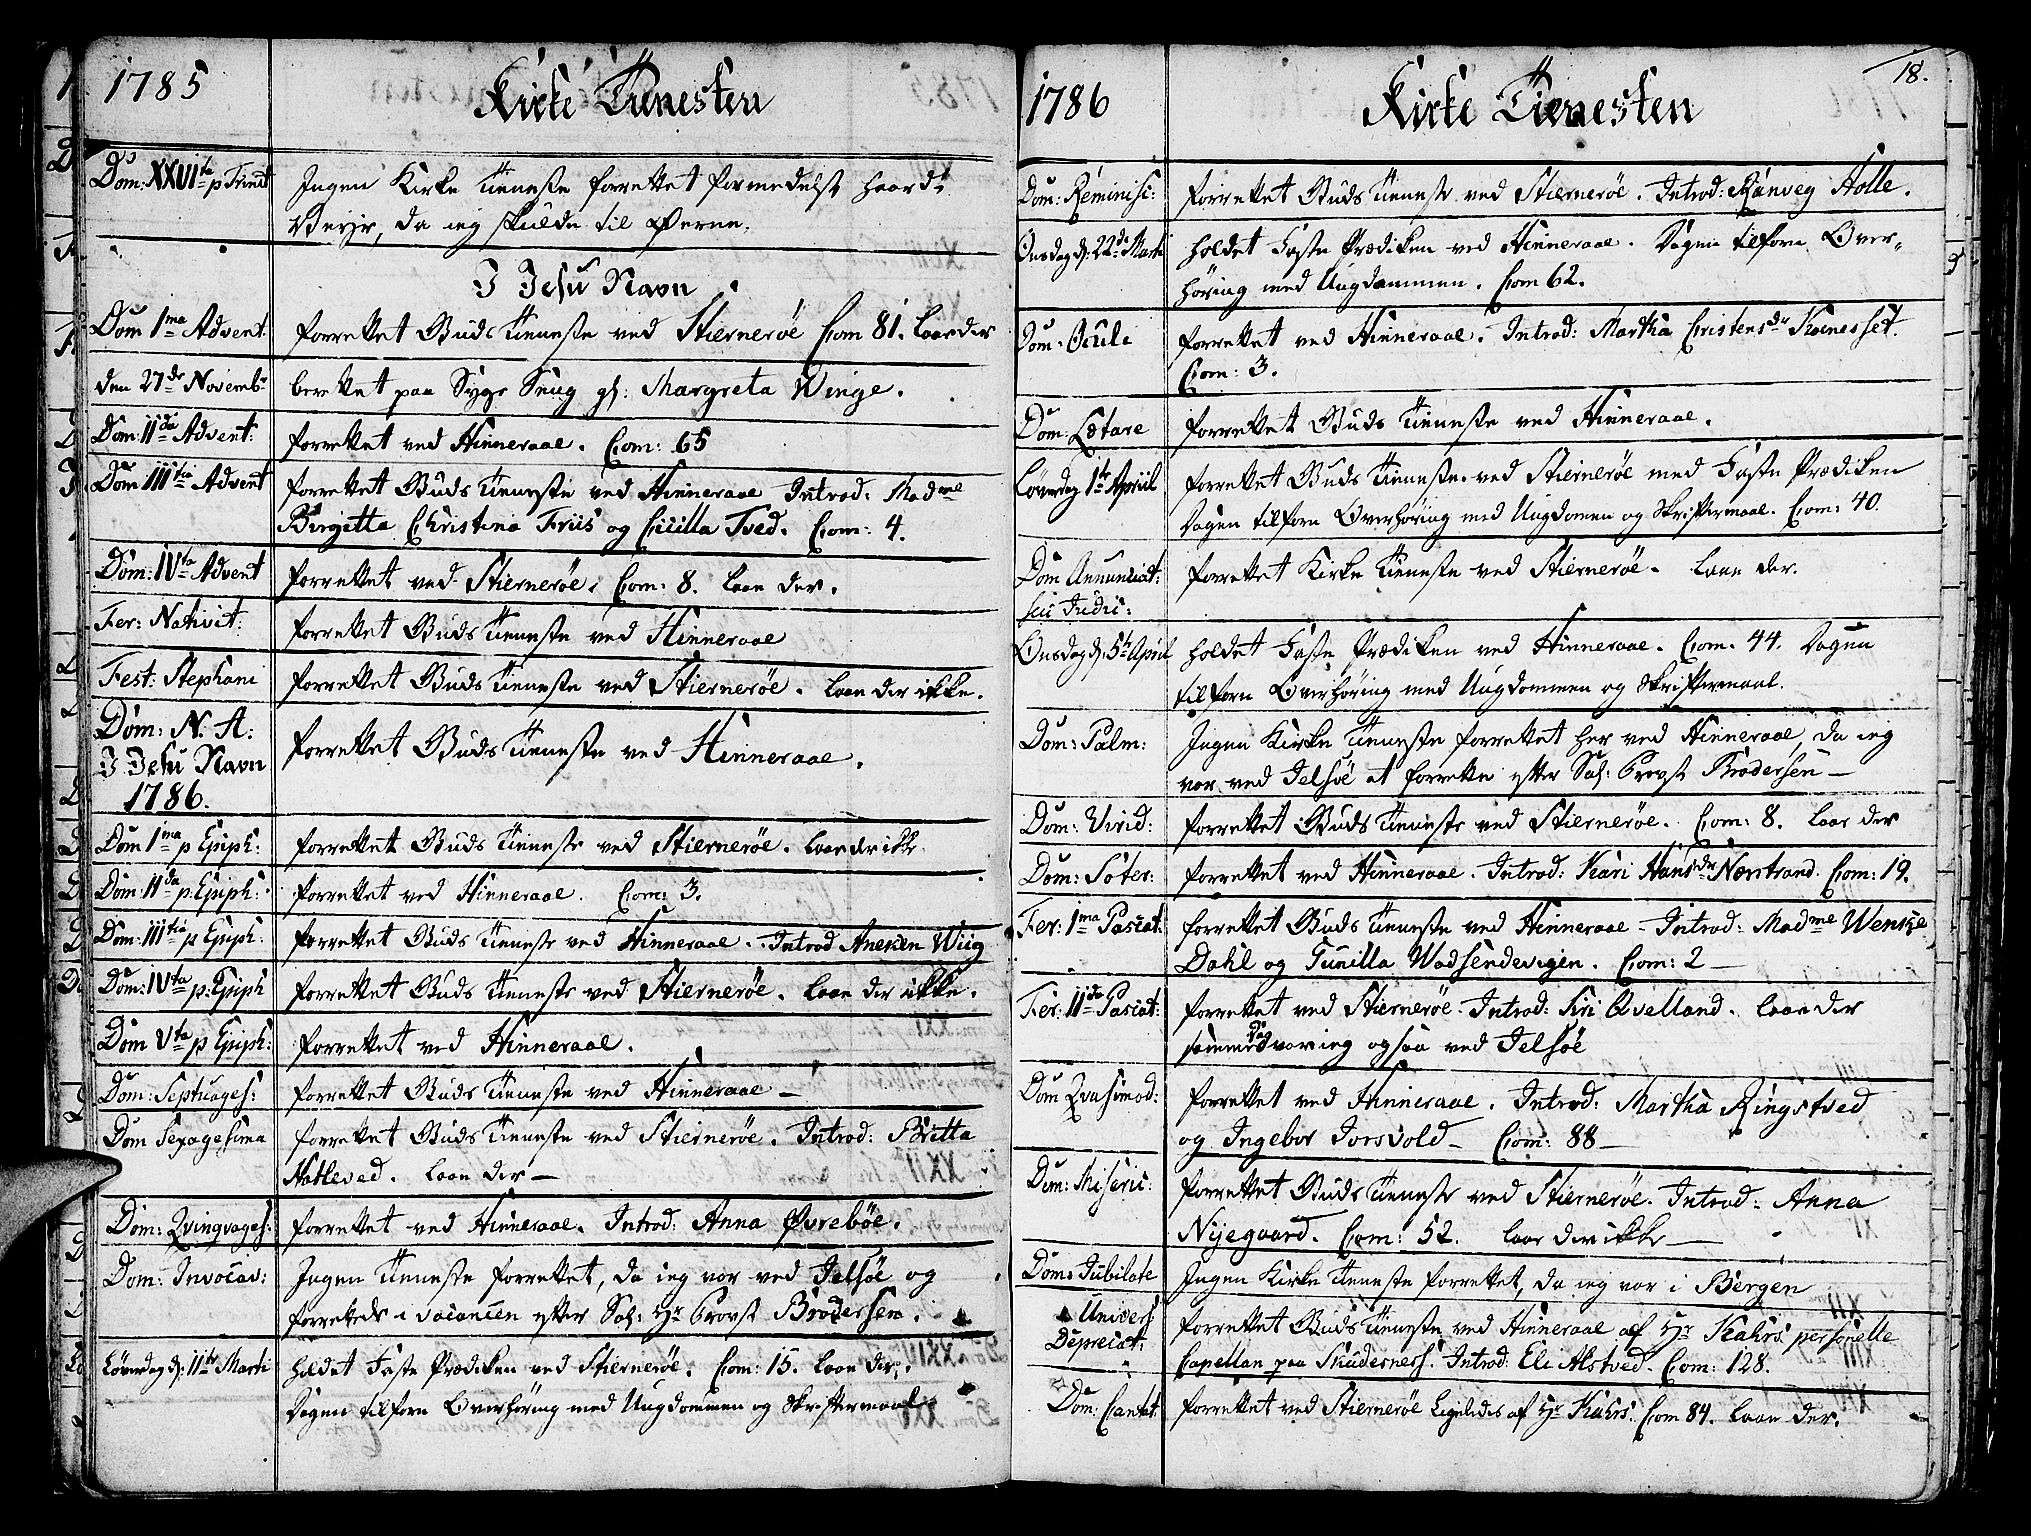 1785
Kirke Tienesten
Dom: XXVIta p Trinit
Ingen Kirke Tieneste forrettet formedelst haardt
Veyr, da ieg skulde til Øerne.
I Jesu Navn.
Dom 1ma Advent.
forrettet Guds Tieneste ved Stiernerøe Com 81. laae der
den 27de Novembr
berettet paa Syge Seng gl: Margreta Winge.
Dom: IIda Advent:
forrettet ved Hinneraae. Com: 65
Dom IIItia Advent
forrettet Guds Tieneste ved Hinneraae Introd: Madme
Birgitta Christina Friis og Cicilla Tved. Com: 4.
Dom: IVta Advent
forrettet ved Stiernerøe. Com: 8. laae der.
Fer: Nativit:
forrettet Guds Tieneste ved Hinneraae
Fest: Stephani
forrettet Guds Tieneste ved Stiernerøe. laae der ikke.
Dom: N. A:
I Jesu Navn
1786.
forrettet Guds Tieneste ved Hinneraae.
Dom 1ma p Epiph:
forrettet Guds Tieneste ved Stiernerøe. laae der ikke.
Dom IIda p. Epiph:
forrettet ved Hinneraae. Com: 3.
Dom: IIItia p Epiph:
forrettet Guds Tieneste ved Hinneraae. Introd Aneken Wiig
Dom: IVta p: Epiph
forrettet Guds Tieneste ved Stiernerøe. laae der ikke.
Dom Vta p Epiph:
forrettet ved Hinneraae.
Dom: Septuages:
forrettet Guds Tieneste ved Hinneraae –
Dom Sexagesima
forrettet Guds Tieneste ved Stiernerøe. Introd: Britta
Hatleved. laae der –
Dom: Qvinqvages:
forrettet ved Hinneraae. Introd: Anna Øvrebøe.
Dom: Invocav:
Ingen Tieneste forrettet, da ieg var ved Jelsøe og
forrettede i vacancen efter Sal: Hr Provst Brodersen.
Løverdag d: 11te Marti
holdet Faste Prædiken ved Stiernerøe. Com: 15. laae der.
Dagen tilforn Overhøring med Ungdommen og Skriftemaal.
18.
1786
Kirke Tienesten
Dom: Reminisc:
forrettet Guds Tieneste ved Stiernerøe. Introd: Ranveg Holle.
Onsdag d: 22de Marti
holdet Faste Prædiken ved Hinneraae. Dagen tilforn Over-
høring med Ungdommen. Com 62.
Dom: Oculi
forrettet ved Hinneraae. Introd: Martha Christensdr
Com: 3.
Dom: Lætare
forrettet Guds Tieneste ved Hinneraae.
Løverdag 1te Apriil
forrettet Guds Tieneste ved Stiernerøe med Faste Prædiken
Dagen tilforn Overhøring med Ungdomen og Skriftemaal. Com: 40.
Dom Annunciat:
seu Judic:
forrettet Kirke Tieneste ved Stiernerøe. laae der.
Onsdag d: 5te April
holdet Faste Prædiken ved Hinneraae. Com. 44. Dagen
tilforn Overhøring med Ungdommen og Skriftemaal.
Dom: Palm:
Ingen Kirke Tieneste forrettet her ved Hinneraae, da ieg
var ved Jelsøe at forrette efter Sal: Provst Brodersen –
Dom: Virid:
forrettet Guds Tieneste ved Stiernerøe. Com: 8. laae der
Dom: Soter:
forrettet ved Hinneraae. Introd: Kari Hansdr Nærstrand. Com: 19.
Fer: 1ma Pascat:
forrettet Guds Tieneste ved Hinneraae – Introd: Madme Wenke
Dahl og Gunilla Wadsendevigen. Com: 2 –
Fer: IIda Pascat:
forrettet ved Stiernerøe. Introd: Siri Qvelland. laae der
samme Dag var ieg ogsaa ved Jelsøe
Dom Qvasimod:
forrettet ved Hinneraae. Introd: Martha Ringstved
og Ingebor Jorsvold – Com: 88 –
Dom: Miseric:
forrettet Guds Tieneste ved Stiernerøe. Introd: Anna
Nijegaard. Com: 52. laae der ikke –
Dom: Jubilate
Ingen Kirke Tieneste forrettet, da ieg var i Bergen
Univers
Deprecat:
forrettet Guds Tieneste ved Hinneraae af Hr Kahrs personelle
Capellan paa Skudesnes. Introd: Eli Alstved. Com: 128.
Dom: Cantat:
forrettet ved Stiernerøe Ligeledes af Hr Kahrs. Com 84. laae der.